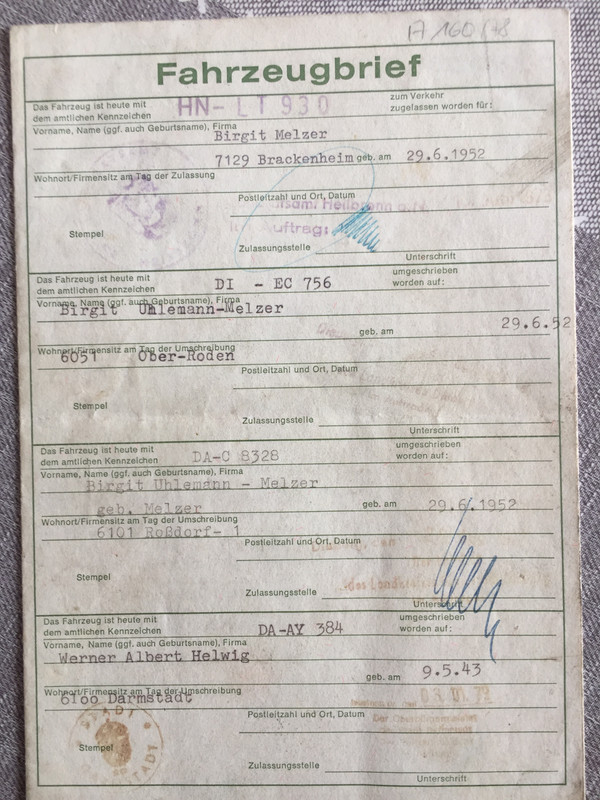 Fahrzeugbrief
Das Fahrzeug ist heute mit
dem amtlichen Kennzeichen
HN-LT 930
zum Verkehr
zugelassen worden für:
Vorname, Name (ggf. auch Geburtsname), Firma
Birgit Melzer
7129 Brackenheim geb. am 29.6.1952
Wohnort/Firmensitz am Tag der Zulassung
Postleitzahl und Ort, Datum
Heilbronn
Auftrag:
Stempel
Zulassungsstelle
Unterschrift
Das Fahrzeug ist heute mit
dem amtlichen Kennzeichen
DI - EC 756
umgeschrieben
worden auf:
Vorname, Name (ggf. auch Geburtsname), Firma
Birgit Uhlemann-Melzer
geb. am 29.6.52
Wohnort/Firmensitz am Tag der Umschreibung
6051 Ober-Roden
Postleitzahl und Ort, Datum
Stempel
Zulassungsstelle
Unterschrift
Das Fahrzeug ist heute mit
dem amtlichen Kennzeichen
DA-C 8328
umgeschrieben
worden auf:
Vorname, Name (ggf. auch Geburtsname), Firma
Birgit Uhlemann - Melzer
geb. Melzer
geb. am 29.6.1952
Wohnort/Firmensitz am Tag der Umschreibung
6101 Roßdorf- 1
Postleitzahl und Ort, Datum
Stempel
Zulassungsstelle
Unterschrift
Das Fahrzeug ist heute mit
dem amtlichen Kennzeichen
DA-AY 384
umgeschrieben
worden auf:
Vorname, Name (ggf. auch Geburtsname), Firma
Werner Albert Helwig
geb. am 9.5.43
Wohnort/Firmensitz am Tag der Umschreibung
6100 Darmstadt
Postleitzahl und Ort, Datum
STADT
Stempel
Zulassungsstelle
Unterschrift